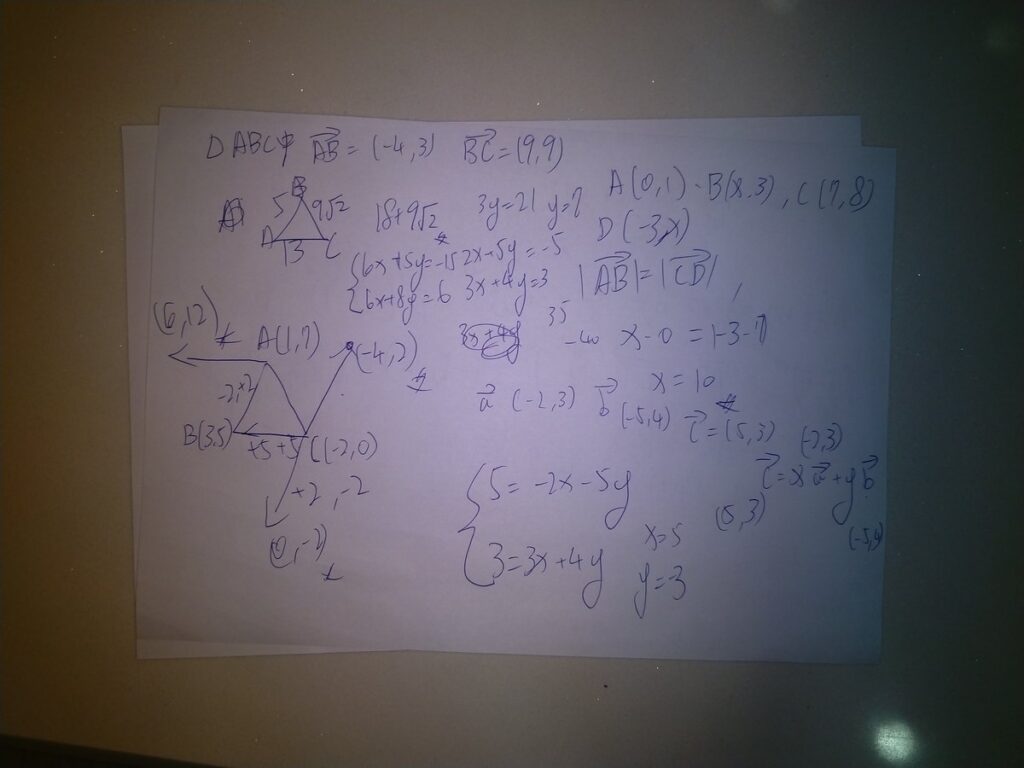 D ABC中 AB = (-4,3) BC = (9,9)
A(0,1)·B(x,3), C(7,8)
B
5 9√2 18+9√2 3y=21 y=7
A 13 C
D(-3,x)
{6x+5y=-15 2x+5y=-5
{6x+8y=6 3x+4y=3
|AB|=|CD|,
(6,12) A(1,7) (-4,2)
35
-40 x-0 = |-3-7
x=10
-2,+2
a (-2,3) b (-5,4) c=(5,3) (-2,3)
B(3,5) +5+5 C(-2,0)
c=xa+yb
+2,-2
{5=-2x-5y (5,3) (-5,4)
x=5
(0,-2)
3=3x+4y y=3